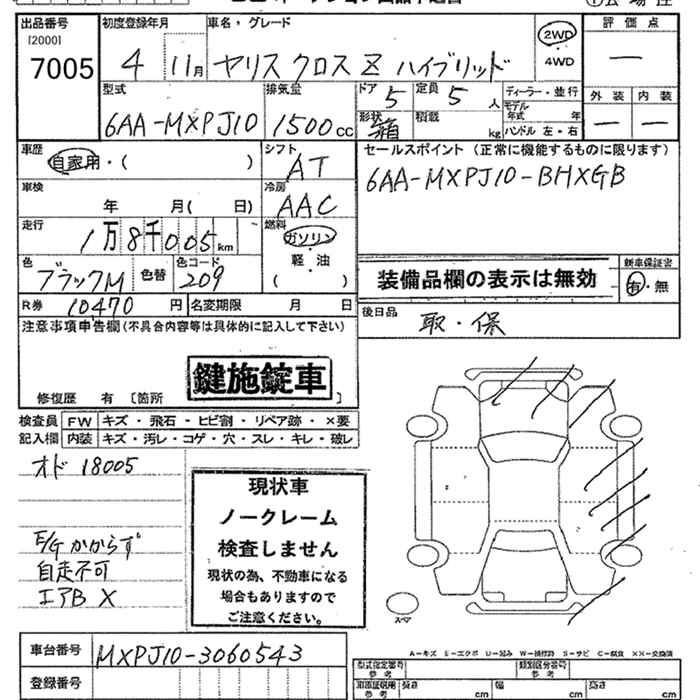 出品番号 初度登録年月 車名・グレード 評価点
[2000]
7005 4 11月 ヤリス クロス Z ハイブリッド 2WD 4WD ー
型式 排気量 ドア 5 定員 5人 ディーラー・並行 外装 内装
6AA-MXPJ10 1500cc 形状 箱 積載 kg モデル年式 年 ハンドル 左・右 ー ー
車歴 自家用・( ) シフト AT セールスポイント (正常に機能するものに限ります)
車検 年 月( 日) 冷房 AAC 6AA-MXPJ10-BHXGB
走行 1万8千005km 燃料 ガソリン 軽・油 ( )
色 ブラックM 色替 色コード 209 装備品欄の表示は無効 新車保証書 有・無
R券 10470円 名変期限 月 日 後日品 取・保
注意事項申告欄(不具合内容等は具体的に記入して下さい)
鍵施錠車
修復歴 有 [箇所 ]
検査員 FW キズ・飛石・ヒビ割・リペア跡・×要
記入欄 内装 キズ・汚レ・コゲ・穴・スレ・キレ・破レ
オド 18005
現状車
ノークレーム
検査しません
現状の為、不動車になる
場合もありますので
ご注意ください。
E/G かからず
自走不可
エアB X
スペア
A-キズ E-エクボ U-凹み W-補修跡 S-サビ C-腐食 XX-交換済
車台番号 MXPJ10-3060543
登録番号
型式指定番号 参考 類別区分番号 参考
長さ cm 幅 cm 高さ cm